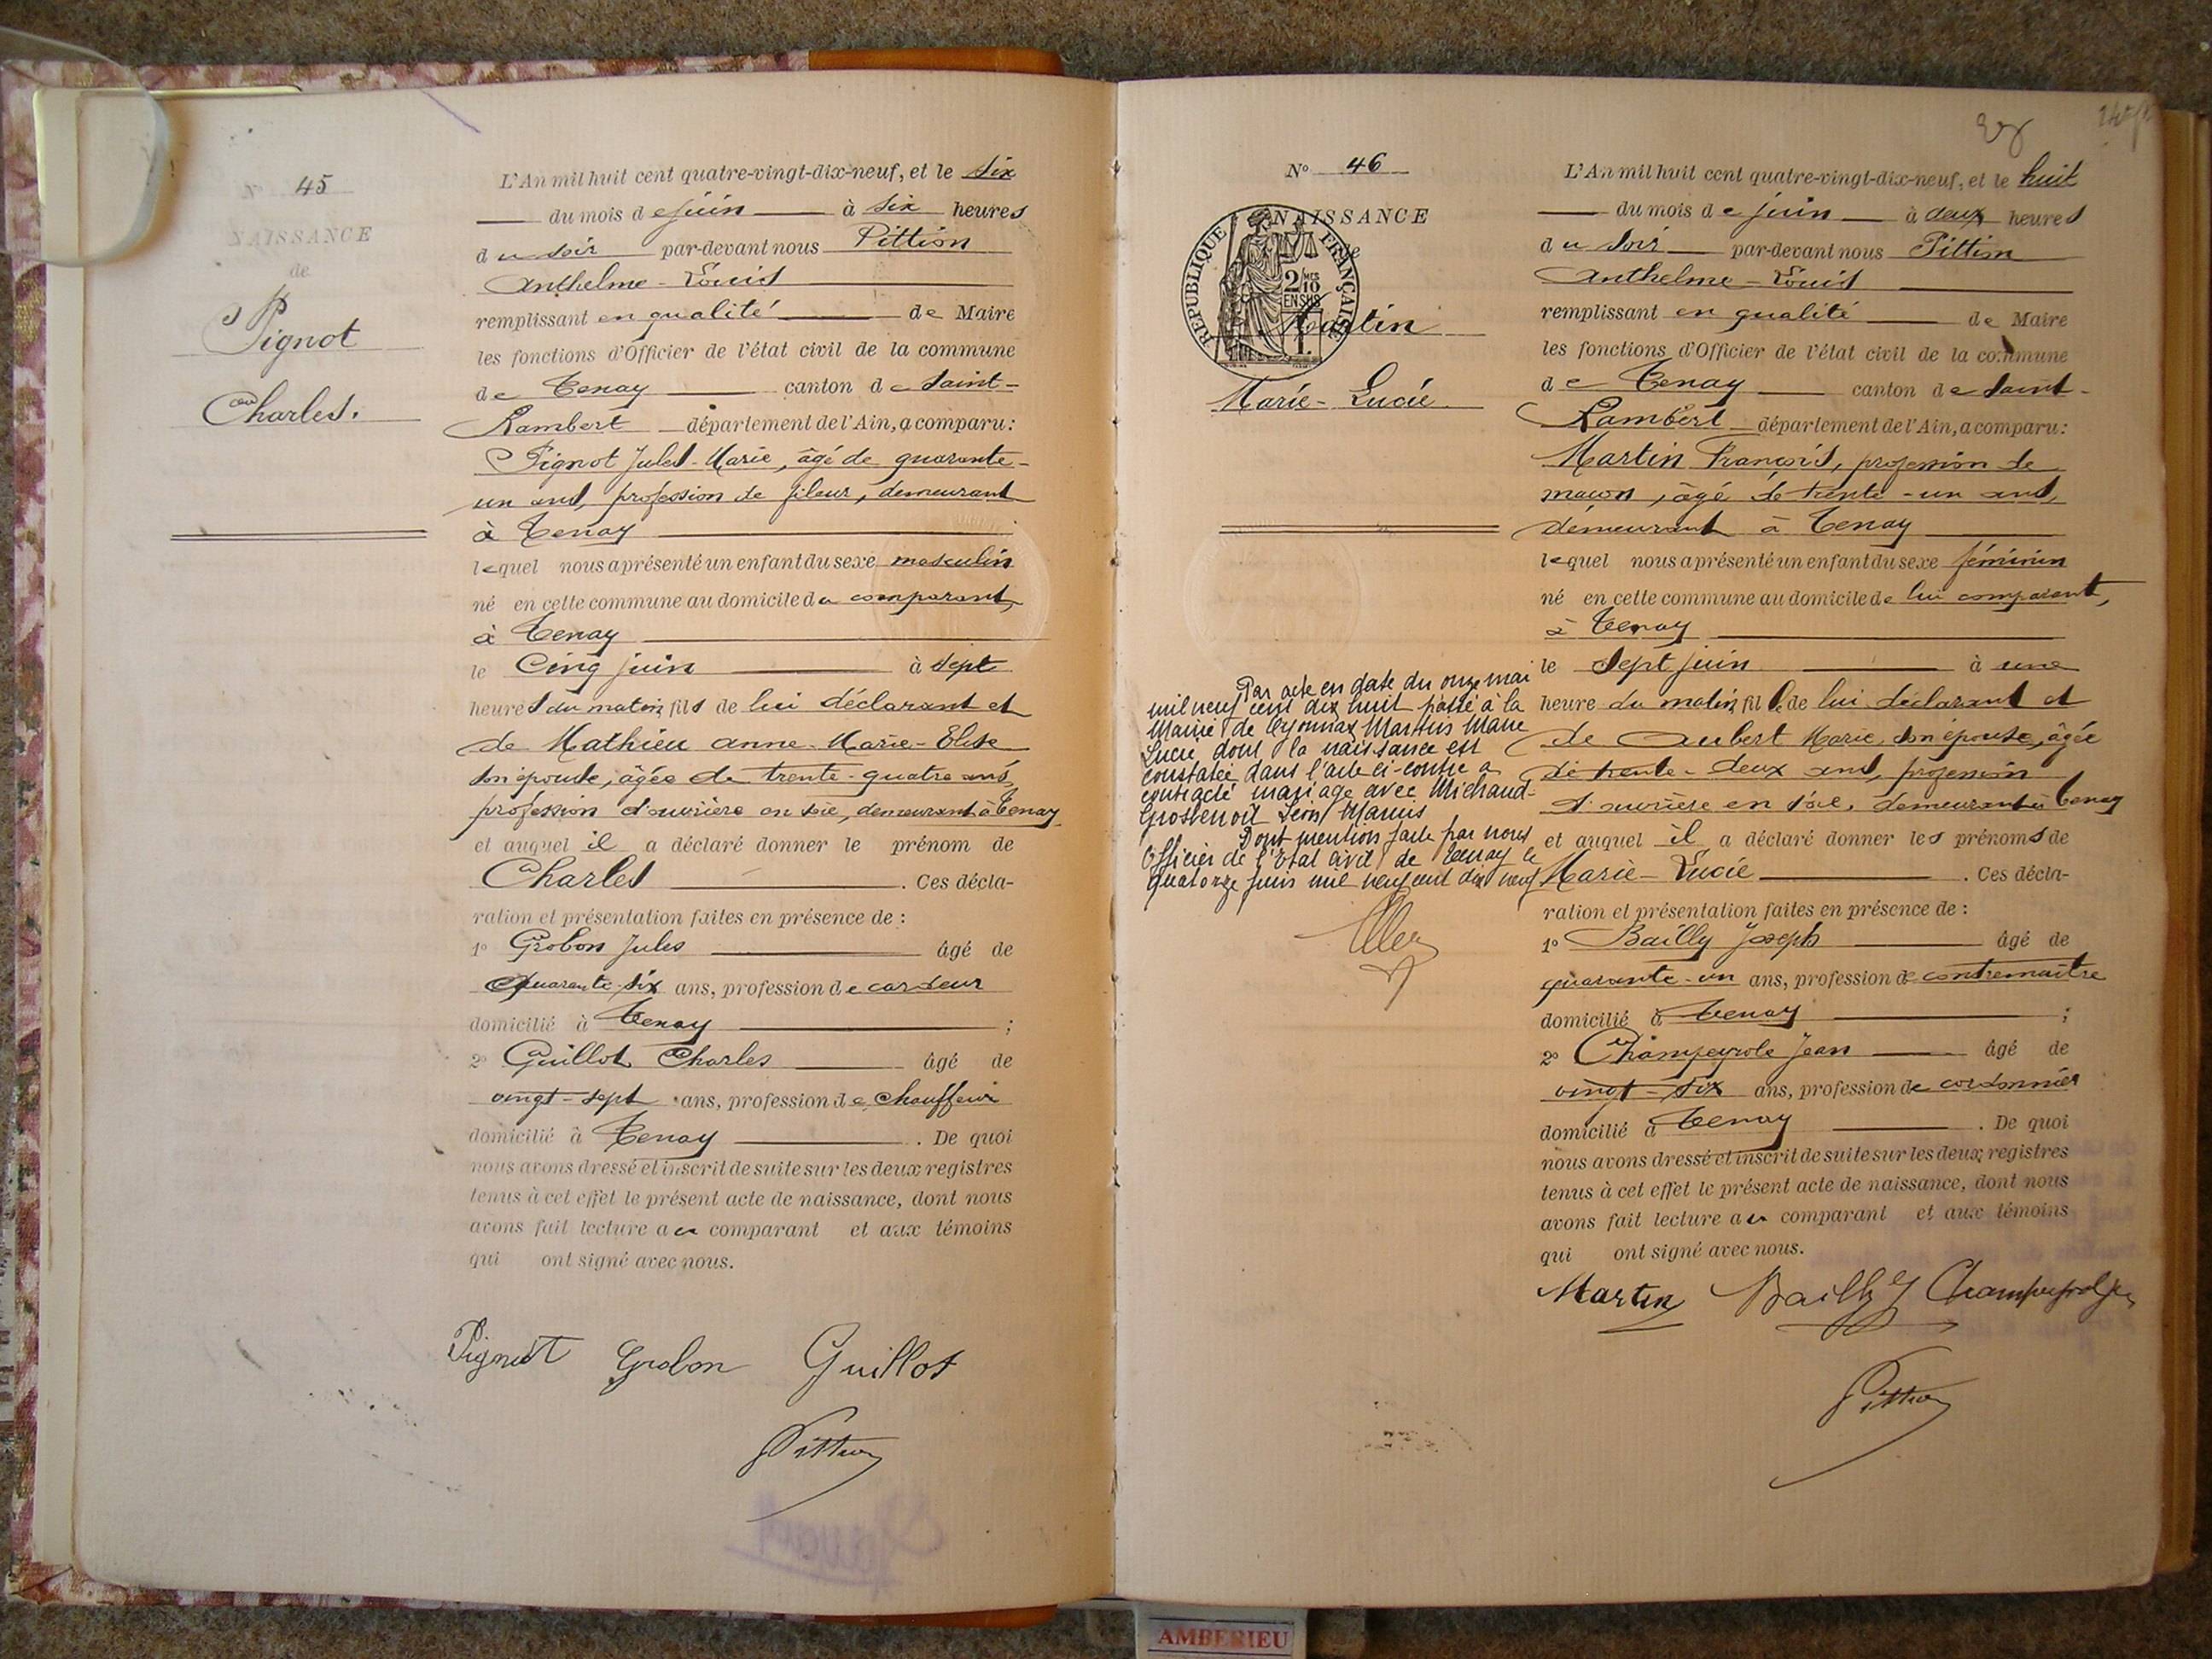 N° 45
NAISSANCE
de
Pignot
Charles.
L'An mil huit cent quatre-vingt-dix-neuf, et le six
du mois de juin à six heures
du soir par-devant nous Pittion
Anthelme-Louis
remplissant en qualité de Maire
les fonctions d'Officier de l'état civil de la commune
de Tenay canton de Saint-
Rambert département de l'Ain, a comparu:
Pignot Jules-Marie, âgé de quarante-
un ans, profession de fileur, demeurant
à Tenay
lequel nous a présenté un enfant du sexe masculin
né en cette commune au domicile du comparant,
à Tenay
le Cinq juin à sept
heures du matin, fils de lui déclarant et
de Mathieu Anne-Marie-Elise
son épouse, âgée de trente-quatre ans,
profession d'ouvrière en soie, demeurant à Tenay
et auquel il a déclaré donner le prénom de
Charles. Ces décla-
ration et présentation faites en présence de :
1° Grobon Jules âgé de
quarante-six ans, profession de cardeur
domicilié à Tenay ;
2° Guillot Charles âgé de
vingt-sept ans, profession de Chauffeur
domicilié à Tenay. De quoi
nous avons dressé et inscrit de suite sur les deux registres
tenus à cet effet le présent acte de naissance, dont nous
avons fait lecture au comparant et aux témoins
qui ont signé avec nous.
Pignot Grobon Guillot
Pittion
N° 46
NAISSANCE
de
RÉPUBLIQUE FRANÇAISE
2/10
EN SUS
Martin
Marie-Lucie
Par acte en date du onze mai
mil neuf cent dix huit passé à la
Mairie de Oyonnax Martin Marie
Lucie dont la naissance est
constatée dans l'acte ci-contre a
contracté mariage avec Michaud-
Grosbenoit Léon Marius
Dont mention faite par nous
Officier de l'Etat civil de Tenay le
quatorze juin mil neuf cent dix neuf
L'An mil huit cent quatre-vingt-dix-neuf, et le huit
du mois de juin à deux heures
du soir par-devant nous Pittion
Anthelme-Louis
remplissant en qualité de Maire
les fonctions d'Officier de l'état civil de la commune
de Tenay canton de Saint-
Rambert département de l'Ain, a comparu:
Martin François, profession de
maçon, âgé de trente-un ans,
demeurant à Tenay
lequel nous a présenté un enfant du sexe féminin
né en cette commune au domicile de lui comparant,
à Tenay
le Sept juin à une
heure du matin, fille de lui déclarant et
de Aubert Marie, son épouse, âgée
de trente-deux ans, profession
d'ouvrière en soie, demeurant à Tenay
et auquel il a déclaré donner les prénoms de
Marie-Lucie. Ces décla-
ration et présentation faites en présence de :
1° Bailly Joseph âgé de
quarante-un ans, profession de contremaître
domicilié à Tenay ;
2° Champeyrole Jean âgé de
vingt-six ans, profession de cordonnier
domicilié à Tenay. De quoi
nous avons dressé et inscrit de suite sur les deux registres
tenus à cet effet le présent acte de naissance, dont nous
avons fait lecture au comparant et aux témoins
qui ont signé avec nous.
Martin Bailly Champeyrol
Pittion
AMBERIEU